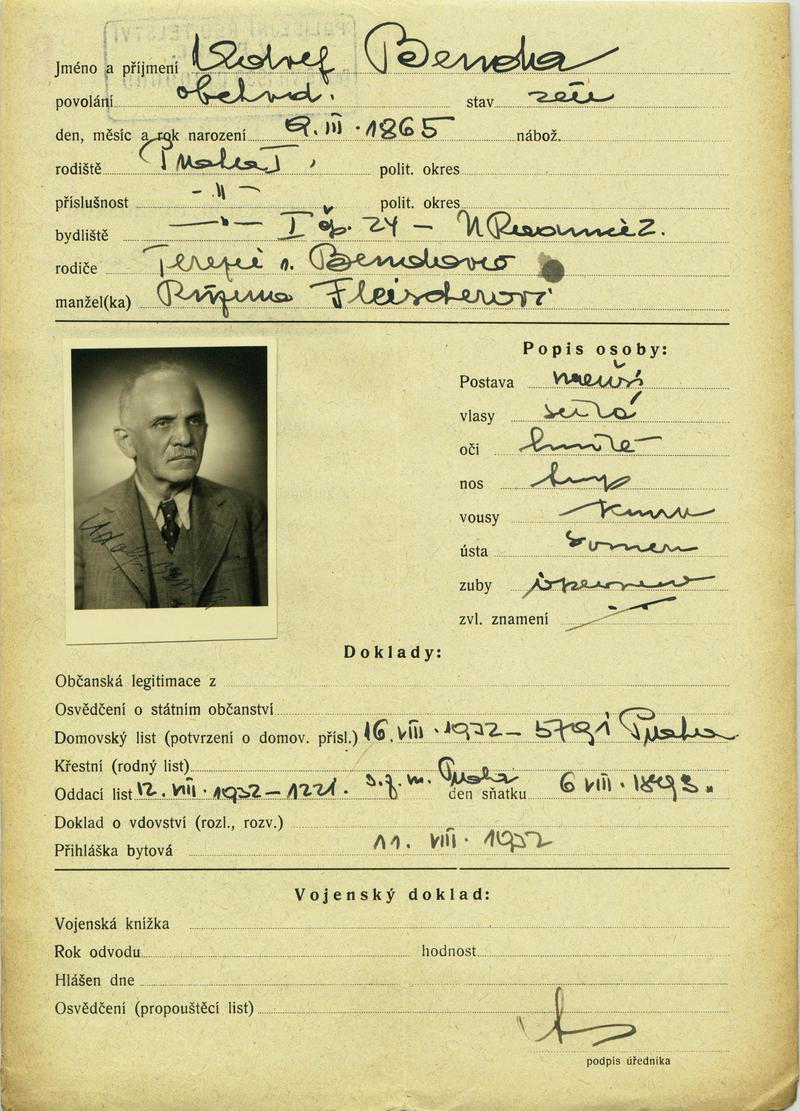 Jméno a příjmení Adolf Benda
povolání obchod. stav
den, měsíc a rok narození 9. III. 1865 nábož.
rodiště Praha I, polit. okres
příslušnost -"- polit. okres
bydliště -"- I čp. 24 –
rodiče Bendovo
manžel(ka) Růžena Fleischerová
Popis osoby:
Postava menší
vlasy
oči hnědé
nos
vousy knír
ústa
zuby
zvl. znamení
Adolf Benda
Doklady:
Občanská legitimace z
Osvědčení o státním občanství
Domovský list (potvrzení o domov. přísl.) 16. VIII. 1932 – 5791 Praha
Křestní (rodný list)
Oddací list 12. VIII. 1932 – 1221. Praha den sňatku 6 VIII. 1893.
Doklad o vdovství (rozl., rozv.)
Přihláška bytová 11. VIII. 1932
Vojenský doklad:
Vojenská knížka
Rok odvodu hodnost
Hlášen dne
Osvědčení (propouštěcí list)
podpis úředníka